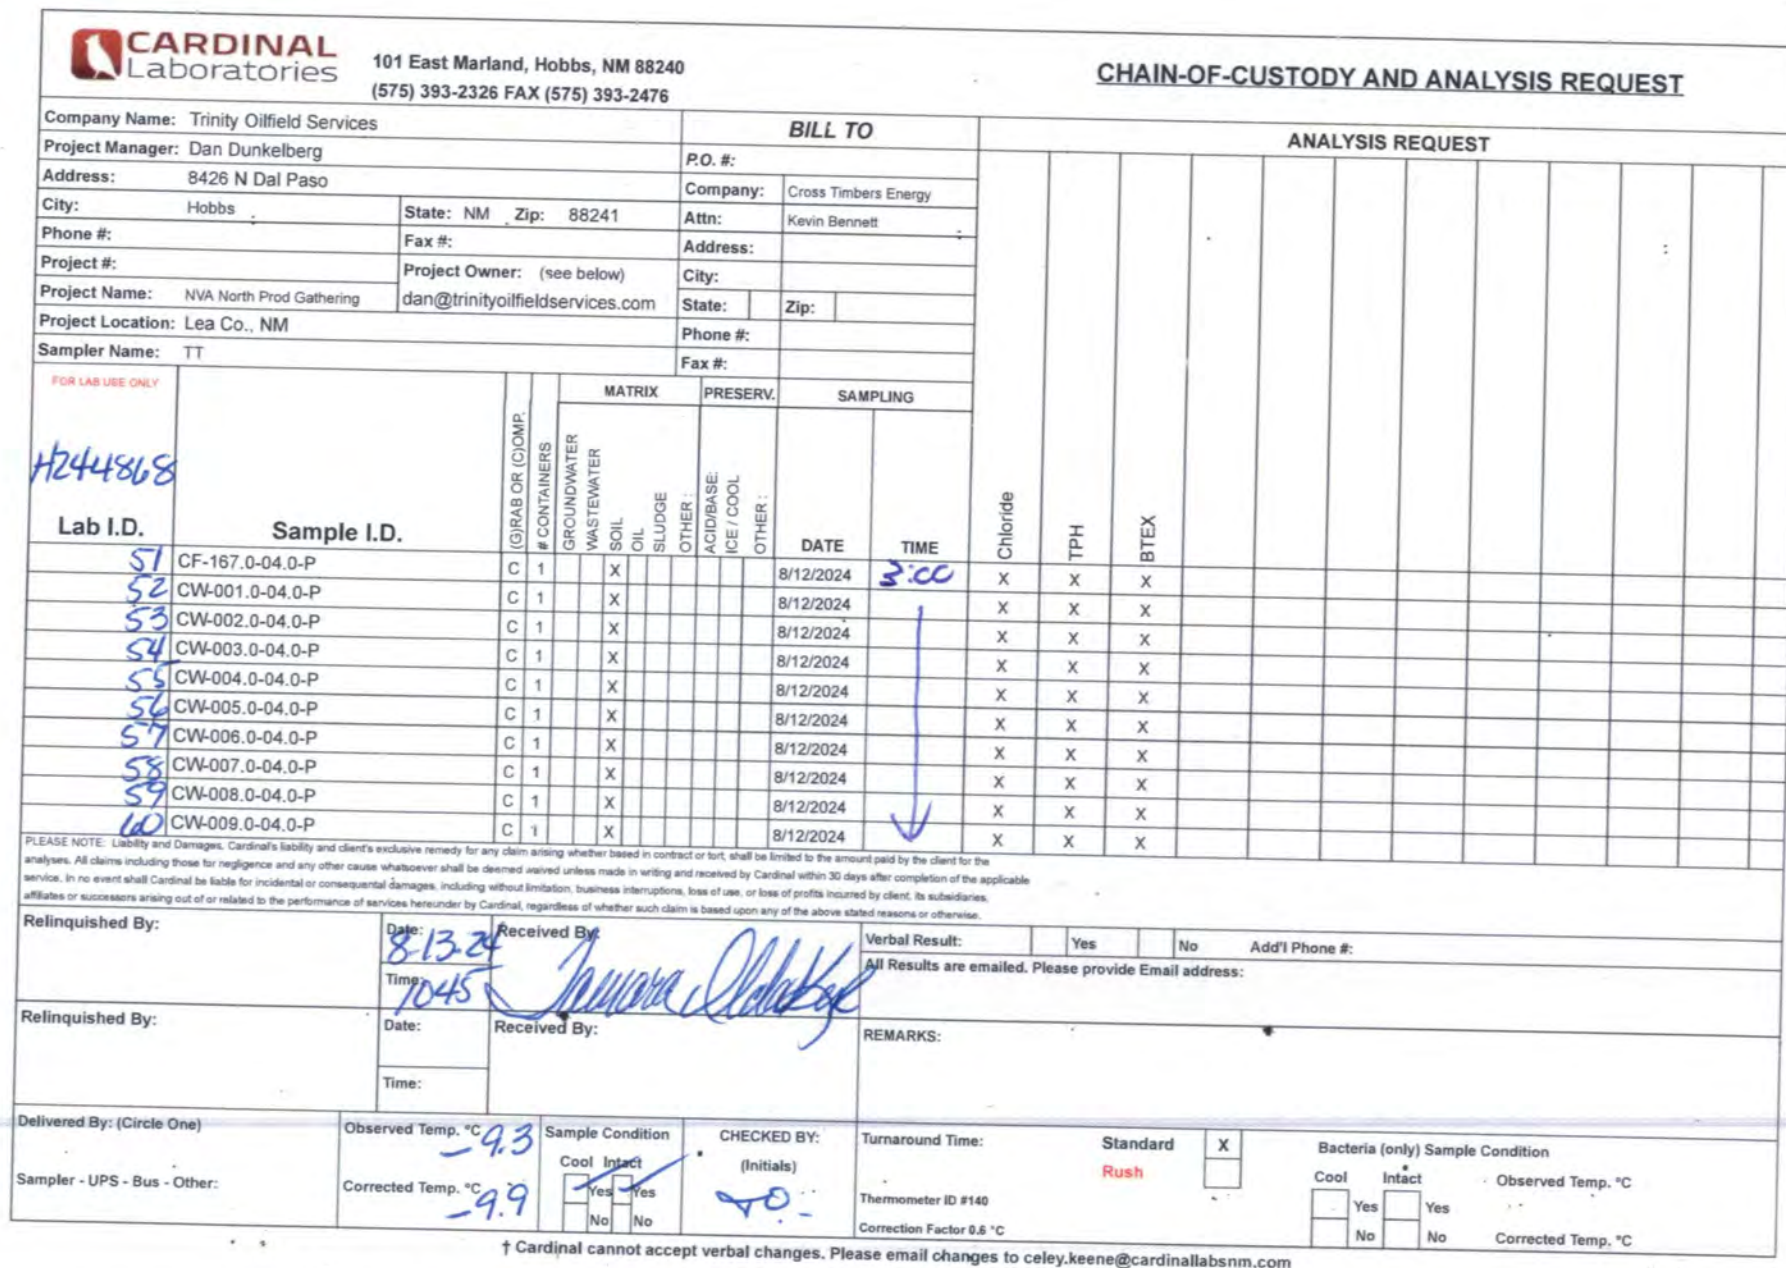 CARDINAL
Laboratories
101 East Marland, Hobbs, NM 88240
(575) 393-2326 FAX (575) 393-2476
CHAIN-OF-CUSTODY AND ANALYSIS REQUEST
Company Name: Trinity Oilfield Services
BILL TO
ANALYSIS REQUEST
Project Manager: Dan Dunkelberg
P.O. #:
Address: 8426 N Dal Paso
Company: Cross Timbers Energy
City: Hobbs State: NM Zip: 88241
Attn: Kevin Bennett
Phone #: Fax #:
Address:
Project #: Project Owner: (see below)
City:
Project Name: NVA North Prod Gathering dan@trinityoilfieldservices.com
State: Zip:
Project Location: Lea Co., NM
Phone #:
Sampler Name: TT
Fax #:
FOR LAB USE ONLY
MATRIX PRESERV. SAMPLING
H244868
Lab I.D. Sample I.D. (G)RAB OR (C)OMP. # CONTAINERS GROUNDWATER WASTEWATER SOIL OIL SLUDGE OTHER : ACID/BASE: ICE / COOL OTHER : DATE TIME Chloride TPH BTEX
51 CF-167.0-04.0-P C 1 X 8/12/2024 3:00 X X X
52 CW-001.0-04.0-P C 1 X 8/12/2024 X X X
53 CW-002.0-04.0-P C 1 X 8/12/2024 X X X
54 CW-003.0-04.0-P C 1 X 8/12/2024 X X X
55 CW-004.0-04.0-P C 1 X 8/12/2024 X X X
56 CW-005.0-04.0-P C 1 X 8/12/2024 X X X
57 CW-006.0-04.0-P C 1 X 8/12/2024 X X X
58 CW-007.0-04.0-P C 1 X 8/12/2024 X X X
59 CW-008.0-04.0-P C 1 X 8/12/2024 X X X
60 CW-009.0-04.0-P C 1 X 8/12/2024 X X X
PLEASE NOTE: Liability and Damages. Cardinal's liability and client's exclusive remedy for any claim arising whether based in contract or tort, shall be limited to the amount paid by the client for the
analyses. All claims including those for negligence and any other cause whatsoever shall be deemed waived unless made in writing and received by Cardinal within 30 days after completion of the applicable
service. In no event shall Cardinal be liable for incidental or consequental damages, including without limitation, business interruptions, loss of use, or loss of profits incurred by client, its subsidiaries,
affiliates or successors arising out of or related to the performance of services hereunder by Cardinal, regardless of whether such claim is based upon any of the above stated reasons or otherwise.
Relinquished By: Date: 8-13-24 Received By: Tamara
Time: 1045
Verbal Result: Yes No Add'l Phone #:
All Results are emailed. Please provide Email address:
Relinquished By: Date: Received By:
Time:
REMARKS:
Delivered By: (Circle One)
Sampler - UPS - Bus - Other:
Observed Temp. °C -9.3
Corrected Temp. °C -9.9
Sample Condition
Cool Intact
Yes Yes
No No
CHECKED BY:
(Initials)
Turnaround Time: Standard X
Rush
Thermometer ID #140
Correction Factor 0.6 °C
Bacteria (only) Sample Condition
Cool Intact Observed Temp. °C
Yes Yes
No No Corrected Temp. °C
† Cardinal cannot accept verbal changes. Please email changes to celey.keene@cardinallabsnm.com